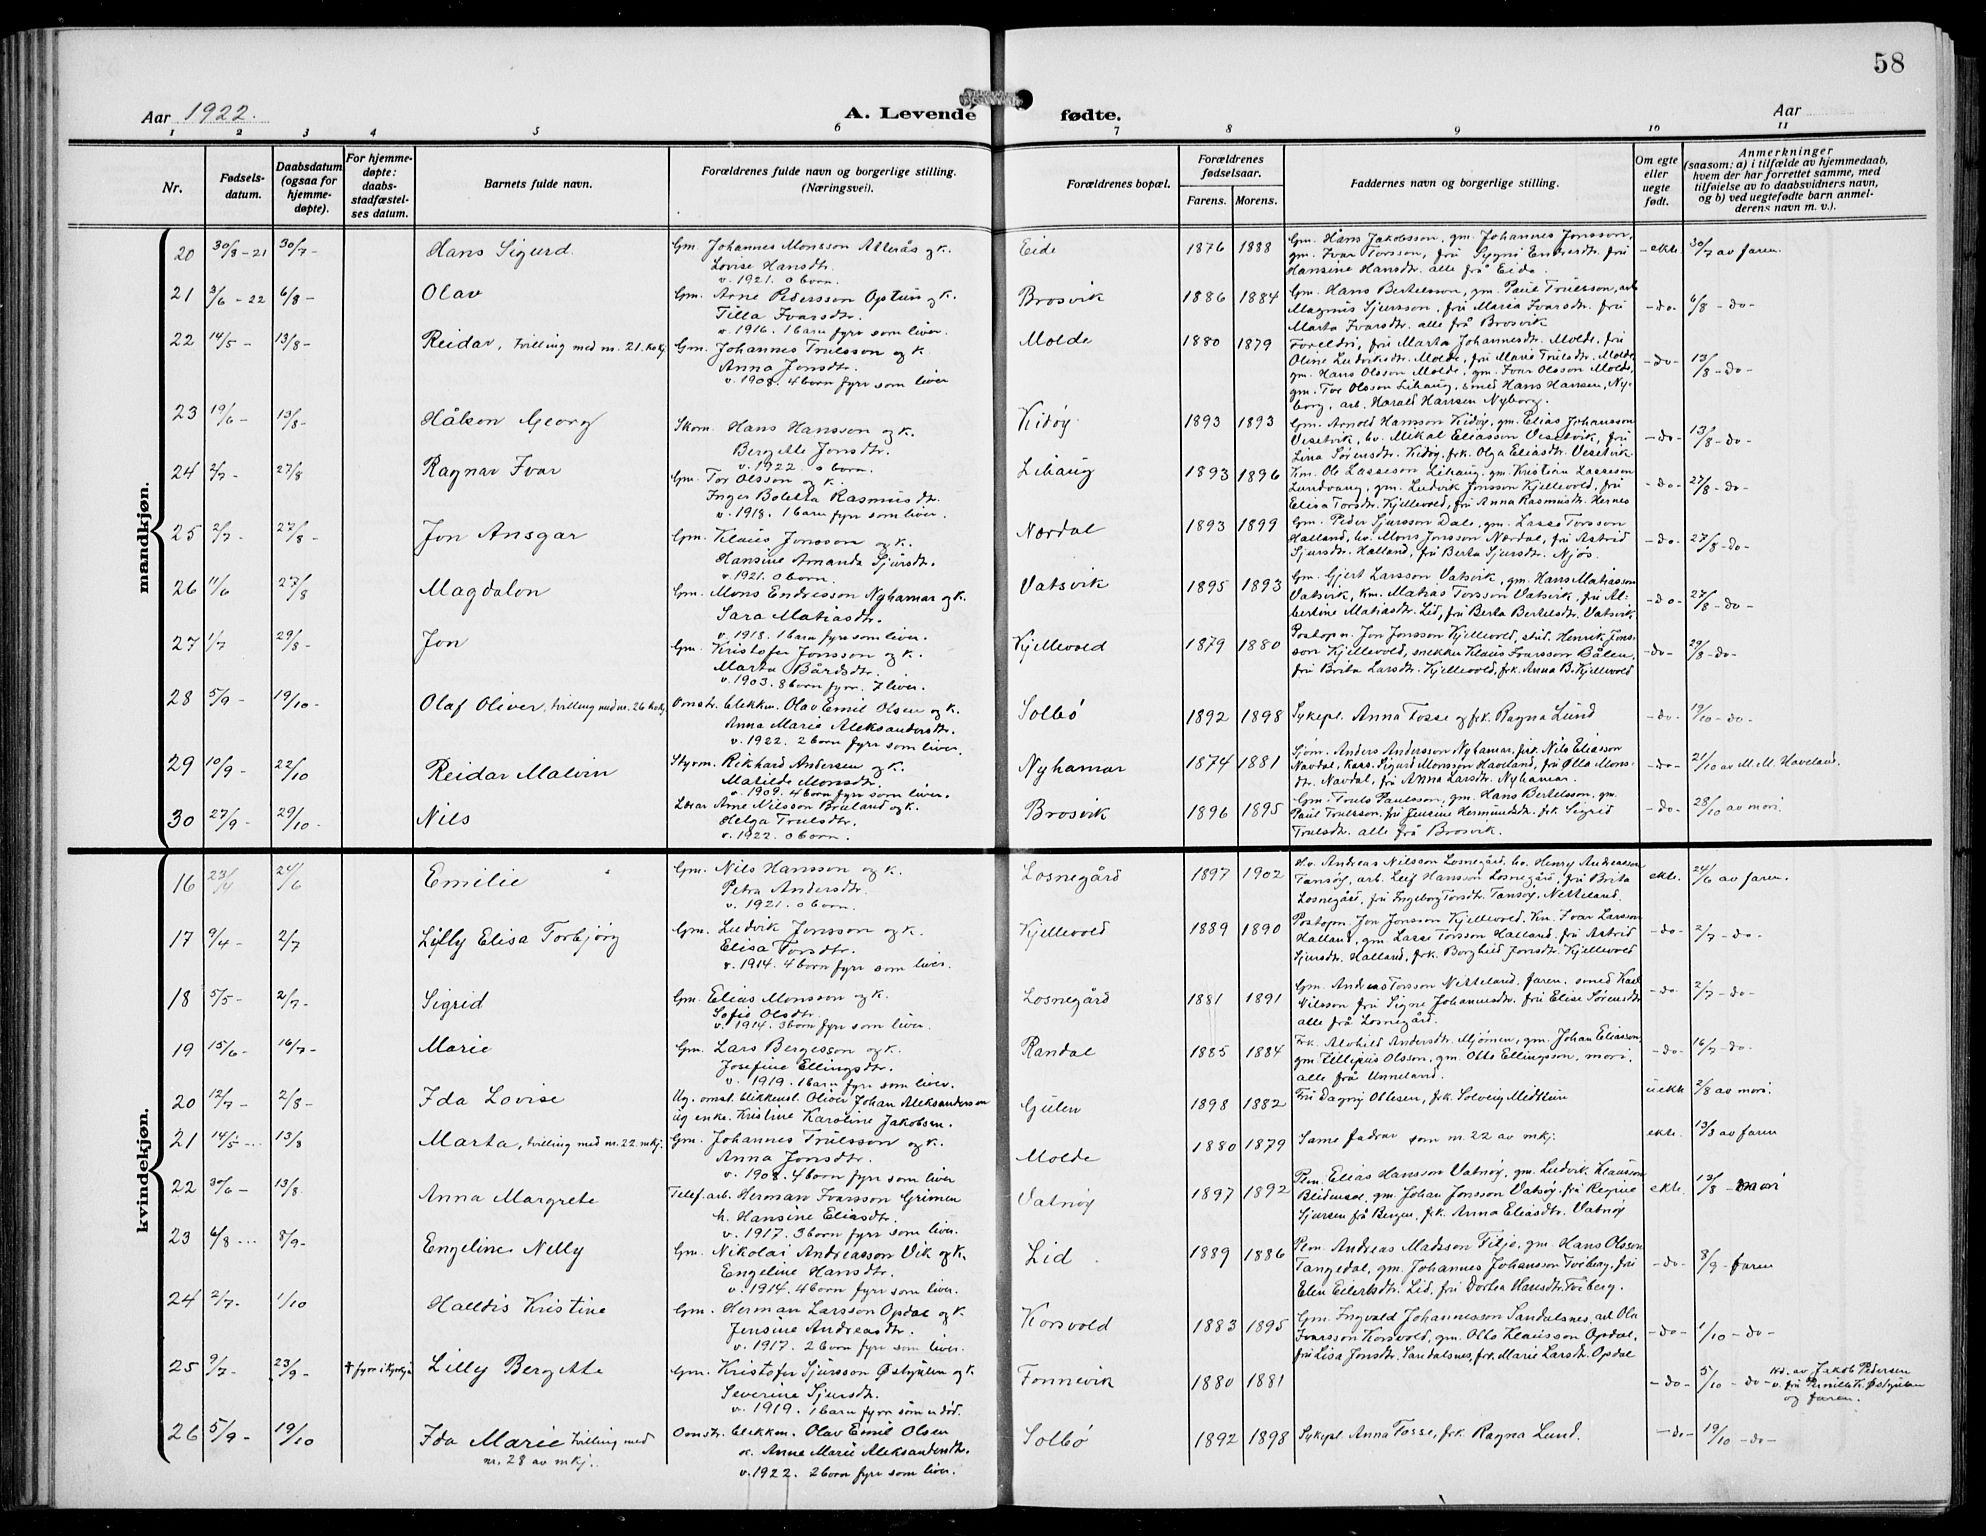 58
Aar 1922.
A. Levende fødte.
Aar
1 2 3 4 5 6 7 8 9 10 11
Nr.
Fødselsdatum.
Daabsdatum (ogsaa for hjemmedøpte).
For hjemmedøpte: daabsstadfæstelses datum.
Barnets fulde navn.
Forældrenes fulde navn og borgerlige stilling. (Næringsvei).
Forældrenes bopæl.
Forældrenes fødselsaar.
Farens. Morens.
Faddernes navn og borgerlige stilling.
Om egte eller uegte født.
Anmerkninger
(saasom: a) i tilfælde av hjemmedaab, hvem der har forrettet samme, med tilføielse av to daabsvidners navn, og b) ved uegtefødte barn anmelderens navn m. v.).
mandkjøn.
20 30/8-21 30/7- Hans Sigurd Gm. Johannes Monsson Allerås og k. Lovise Hansdtr. v. 1921. 0 born. Eide 1876 1888 Gm. Hans Jakobsson, gm. Johannes Jonsson, gm. Ivar Torsson, frk Sygni Endresdtr. fru Hansine Hansdtr. alle frå Eide. -ekte. 30/7 av faren.
21 3/6-22 6/8- Olav Gm. Arne Pedersson Optun og k. Tilla Ivarsdtr. v. 1916. 1 barn fyrr som liver. Brosvik 1886 1884 Gm. Hans Bertelsson, gm. Paul Trulsson, arb Magnus Sjursson, fru Maria Ivarsdtr. fru Marta Ivarsdtr. alle frå Brosvik -do- 6/8 -do-
22 14/5- 13/8- Reidar, tvilling med nr. 21. kvkj. Gm. Johannes Trulsson og k. Anna Jonsdtr. v. 1908. 4 born fyrr som liver Molde 1880 1879 Foreldri, fru Marta Johannesdtr. Molde, fru Oline Ludviksdtr. Molde, fru Mari Trulsdtr. Molde, gm. Hans Olsson Molde, gm. Ivar Olsson Molde, gm. Tor Olsson Lihaug, smed Hans Hansen, Nyborg, arb. Harald Hansen Nyborg. -do- 13/8 -do-
23 19/6- 13/8- Håkon Georg Skom. Hans Hansson og k. Bergitte Jonsdtr. v. 1922. 0 born. Kidøy 1893 1893 Gm. Arnold Hansson Kidøy, gm. Elias Johansson Visetvik, hv. Mikal Eliasson Visetvik, fru Lina Sørensdtr. Kidøy, frk. Olga Eliasdtr. Visetvik -do- 13/8 -do-
24 2/7- 27/8 Ragnar Ivar Gm. Tor Olsson og k. Inger Boletta Rasmusdtr. v. 1918. 1 barn fyrr som liver. Lihaug 1893 1896 Km. Ole Lasseson Lihaug, gm. Kristian Lasseson Lundvang, gm. Ludvik Jonsson Kjellevold, fru Elisa Torsdtr. Kjellevold, fru Anna Rasmusdtr. Hernes -do- 27/8 -do-
25 2/7- 27/8- Jon Ansgar Gm. Klaus Jonsson og k. Hansine Amanda Sjursdtr. v. 1921. 0 born. Nærdal 1893 1899 Gm. Peder Sjursson Dale, gm. Lasse Torsson Halland, hv. Mons Jonsson Nærdal, fru Astrid Sjursdtr. Halland, frk Berta Sjursdtr. Njøs. -do- 27/8 -do-
26 11/6 27/8 Magdalon Gm. Mons Endresson Nyhamar og k. Sara Matiasdtr. v. 1918. 1 barn fyrr som liver. Vatsvik 1895 1893 Gm. Gjert Larsson Vatsvik, gm. Hans Matiasson Vatsvik, Km. Matias Torsson Vatsvik, fru Albertine Matiasdtr. Lid, fru Berta Bertelsdtr. Vatsvik -do- 27/8 -do-
27 1/7 29/8- Jon Gm. Kristofer Jonsson og k. Marta Bårdsdtr. v. 1903. 8 born fyrr. 7 liver. Kjellevold 1879 1880 Postopn. Jon Jonsson Kjellevold, stud. Henrik Jonsson Kjellevold, snekker Klaus Ivarsson Bålen, fru Brita Larsdtr. Kjellevold, frk. Anna B. Kjellevold -do- 29/8 -do-
28 5/9- 19/10- Olaf Oliver, tvilling med nr. 26 kvkj. Omstr. blikken. Olav Emil Olsen og k. Anna Marie Aleksandersdtr. v. 1922. 2 born fyrr som liver. Solbø 1892 1898 Sykepl. Anna Tosse og frk. Ragna Lund -do- 19/10 -do-
29 10/9- 22/10 Reidar Malvin Styrm. Rikhard Andersen og k. Matilde Monsdtr. v. 1909. 4 born fyrr som liver. Nyhamar 1874 1881 Sjøm. Anders Andersson Nyhamar, frk. Nils Eliasson Navdal, kass. Sigurd Monsson Haveland, fru Otta Monsdtr. Navdal, fru Anna Larsdtr. Nyhamar. -do- 21/10 av M. M. Haveland.
30 27/9- 29/10- Nils Lærar Arne Nilsson Bruland og k. Helga Trulsdtr. v. 1922. 0 born. Brosvik 1896 1895 Gm. Truls Paulsson, gm. Hans Bertelsson, gm. Paul Trulsson, fru Jensine Hermundsdtr. frk Sigrid Trulsdtr. alle frå Brosvik. -do- 28/10 av mori.
kvindekjøn.
16 23/4 24/6 Emilie Gm. Nils Hansson og k. Petra Andersdtr. v. 1921. 0 born. Losnegård 1897 1902 Hv. Andreas Nilsson Losnegård, hv. Henry Andreasson Tansøy, arb. Leif Hansson Losnegård, fru Brita Losnegård, fru Ingeborg Torsdtr. Tansøy, Netteland. ekte. 24/6 av faren.
17 9/4- 2/7 Lilly Elisa Torbjørg Gm. Ludvik Jonsson og k. Elisa Torsdtr. v. 1914. 4 born fyrr som liver. Kjellevold 1889 1890 Postopn. Jon Jonsson Kjellevold. Km. Ivar Larsson Halland, gm. Lasse Torsson Halland, fru Astrid Sjursdtr. Halland, frk. Borghild Jonsdtr. Kjellevold -do- 2/7 -do-
18 5/5- 2/7- Sigrid Gm. Elias Monsson og k. Sofie Olsdtr. v. 1914. 3 born fyrr som liver. Losnegård 1881 1891 Gm. Andreas Torsson Nitteland, faren, smed Karl Nilsson fru Signe Johannesdtr. fru Elise Sørensdtr. alle frå Losnegård. -do- 2/7 -do-
19 15/6- 16/7- Marie Gm. Lars Bergesson og k. Josefine Ellingsdtr. v. 1919. 1 barn fyrr som liver. Randal 1885 1884 Frk. Alvhild Andersdtr. Mjømen, gm. Johan Eliasson, gm. Zillepius Olsson, gm. Otto Ellingsson, mori, alle frå Unneland. -do- 16/7 -do-
20 12/7- 2/8- Ida Lovise Ug. omst. blikkensl. Oliver Johan Aleksanderson og enke. Kristine Karoline Jakobsen. Gulen 1898 1882 Fru Dagny Ottesen, frk. Solveig Midttun uekte 2/8 av mori.
21 14/5- 13/8 Marta, tvilling med nr. 22. mkj. Gm. Johannes Trulsson og k. Anna Jonsdtr. v. 1908. 4 born fyrr som liver Molde 1880 1879 Same fadrar som nr. 22 av mkj. ekte. 13/8 av faren
22 30/6- 13/8. Anna Margrete Telef. arb. Herman Ivarsson Grimen k. Hansine Eliasdtr. v. 1917. 3 born fyrr som liver. Vatnøy 1897 1892 Pm. Elias Hansson Vatnøy, gm. Ludvik Klausson Bleidensol, gm. Johan Jonsson Vatsøy, frk Regine Sjursen frå Bergen, frk. Anna Eliasdtr. Vatnøy ekte. 13/8 - mori
23 6/8... 8/9- Engeline Nelly Gm. Nikolai Andreasson Vik og k. Engeline Hansdtr. v. 1914. 4 born fyrr som liver. Lid 1889 1886 Pm. Andreas Madsson Filjo, gm. Hans Olsson Tangedal, gm. Johannes Johansson Tveberg, fru Elen Eilertsdtr. Lid, fru Dortea Hansdtr. Tveberg. -do- 8/9- faren
24 2/7. 1/10 Halldis Kristine Gm. Herman Larsson Opdal og k. Jensine Andreasdtr. v. 1917. 2 born fyrr som liver. Korsvold 1883 1895 Gm. Ingvald Johannesson Sandalsnes, arb Ola Ivarsson Korsvold, gm. Otto Klausson Opdal, fru Lisa Jonsdtr. Sandalsnes, frk. Marie Larsdtr. Opdal -do- 1/10 -do-
25 9/7- 23/9- † fyrr i kyrkja Lilly Bergitte Gm. Kristofer Sjursson Østgulen og k. Severine Sjursdtr. v. 1919. 1 barn fyrr som er død. Fonnevik 1880 1881 -do- 5/10 -do- Hd. av Jakob Pedersen v. fru Pernille K. Østgulen og faren.
26 5/9- 19/10 Ida Marie tvilling med nr. 28 av mkj. Omstr. blikken. Olav Emil Olsen k. Anne Marie Aleksandersdtr. v. 1922. 2 born fyrr som liver. Solbø 1892 1898 Sykepl. Anna Tosse, frk. Ragna Lund. -do- 19/10 -do-